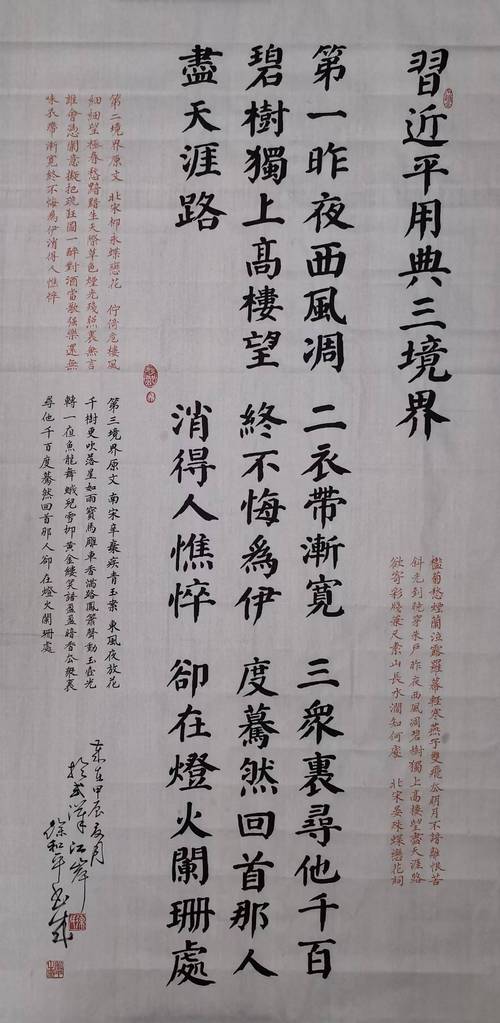 習近平用典三境界
第一昨夜西風凋
碧樹獨上高樓望
盡天涯路
二衣帶漸寬
終不悔為伊
消得人憔悴
三衆裏尋他千百
度驀然回首那人
卻在燈火闌珊處
檻菊愁煙蘭泣露羅幕輕寒燕子雙飛去明月不諳離恨苦
斜光到曉穿朱戶昨夜西風凋碧樹獨上高樓望盡天涯路
欲寄彩牋兼尺素山長水濶知何處 北宋晏殊蝶戀花詞
第二境界原文 北宋柳永蝶戀花 佇倚危樓風
細細望極春愁黯黯生天際草色煙光殘照裏無言
誰會憑闌意擬把疏狂圖一醉對酒當歌强樂還無
味衣帶漸寬終不悔為伊消得人憔悴
第三境界原文 南宋辛棄疾青玉案 東風夜放花
千樹更吹落星如雨寶馬雕車香滿路鳳簫聲動玉壺光
轉一夜魚龍舞蛾兒雪柳黃金縷笑語盈盈暗香去衆裏
尋他千百度驀然回首那人卻在燈火闌珊處
歲在甲辰五月
於武漢江岸
徐和平書